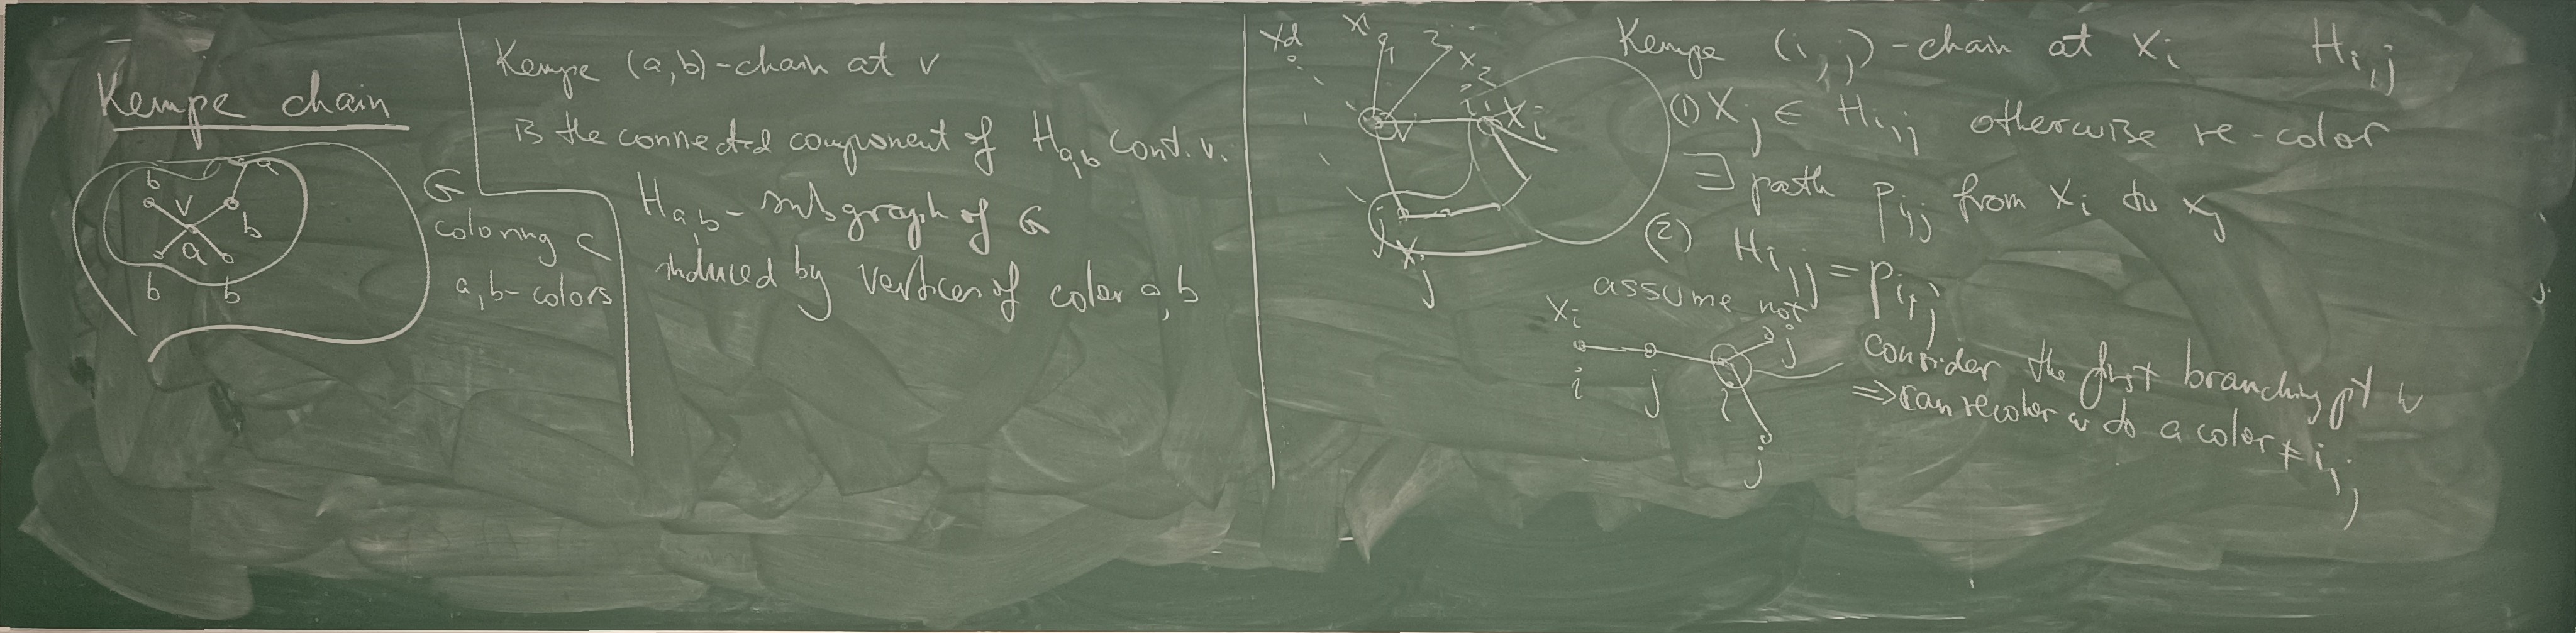 Kempe chain
b
a
v
b
a
b
b
G
coloring c
a, b - colors
Kempe (a,b)-chain at v
is the connected component of Ha,b cont. v.
Ha,b - subgraph of G
induced by vertices of color a, b
xd
x1
1
2
x2
i
xi
v
j
xj
Kempe (i,j)-chain at xi Hi,j
(1) xj ∈ Hi,j otherwise re-color
∃ path Pi,j from xi to xj
(2) Hi,j = Pi,j
assume not
xi
i
j
i
j
j
consider the first branching pt w
⇒ can recolor w to a color ≠ i, j